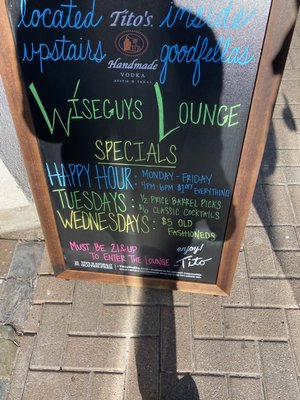 located inside
upstairs goodfellas
Tito's.
Handmade
VODKA
AUSTIN ★ TEXAS
WISEGUYS LOUNGE
SPECIALS
HAPPY HOUR: MONDAY - FRIDAY
4PM-6PM $1 OFF EVERYTHING
TUESDAYS: 1/2 PRICE BARREL PICKS
$6 CLASSIC COCKTAILS
WEDNESDAYS: $5 OLD
FASHIONEDS
MUST BE 21 & UP
TO ENTER THE LOUNGE
enjoy!
Tito